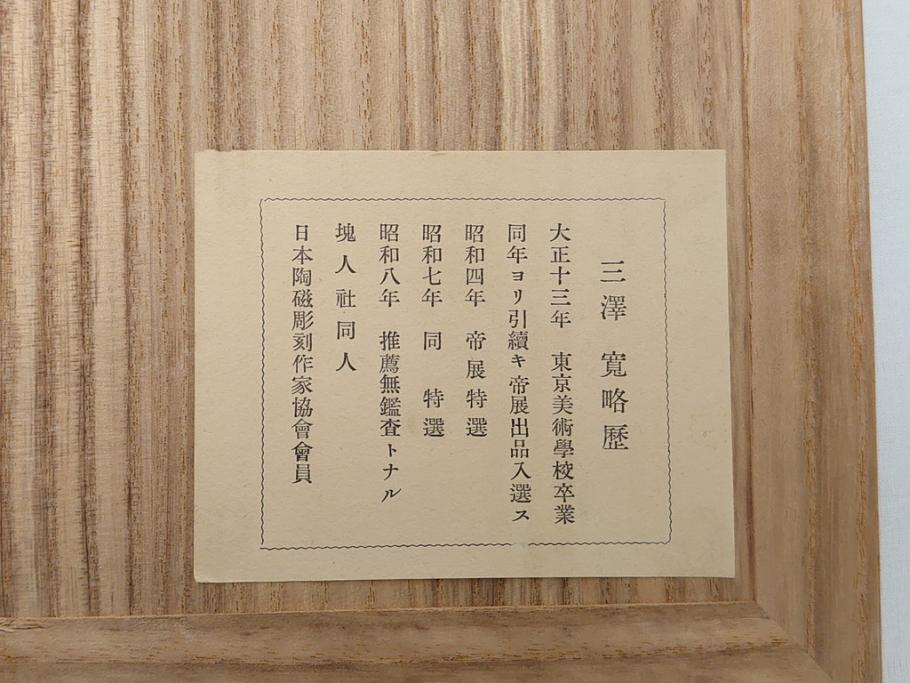 三澤 寬略歷
大正十三年 東京美術學校卒業
同年ヨリ引續キ帝展出品入選ス
昭和四年 帝展特選
昭和七年 同 特選
昭和八年 推薦無鑑査トナル
塊人社同人
日本陶磁彫刻作家協會會員